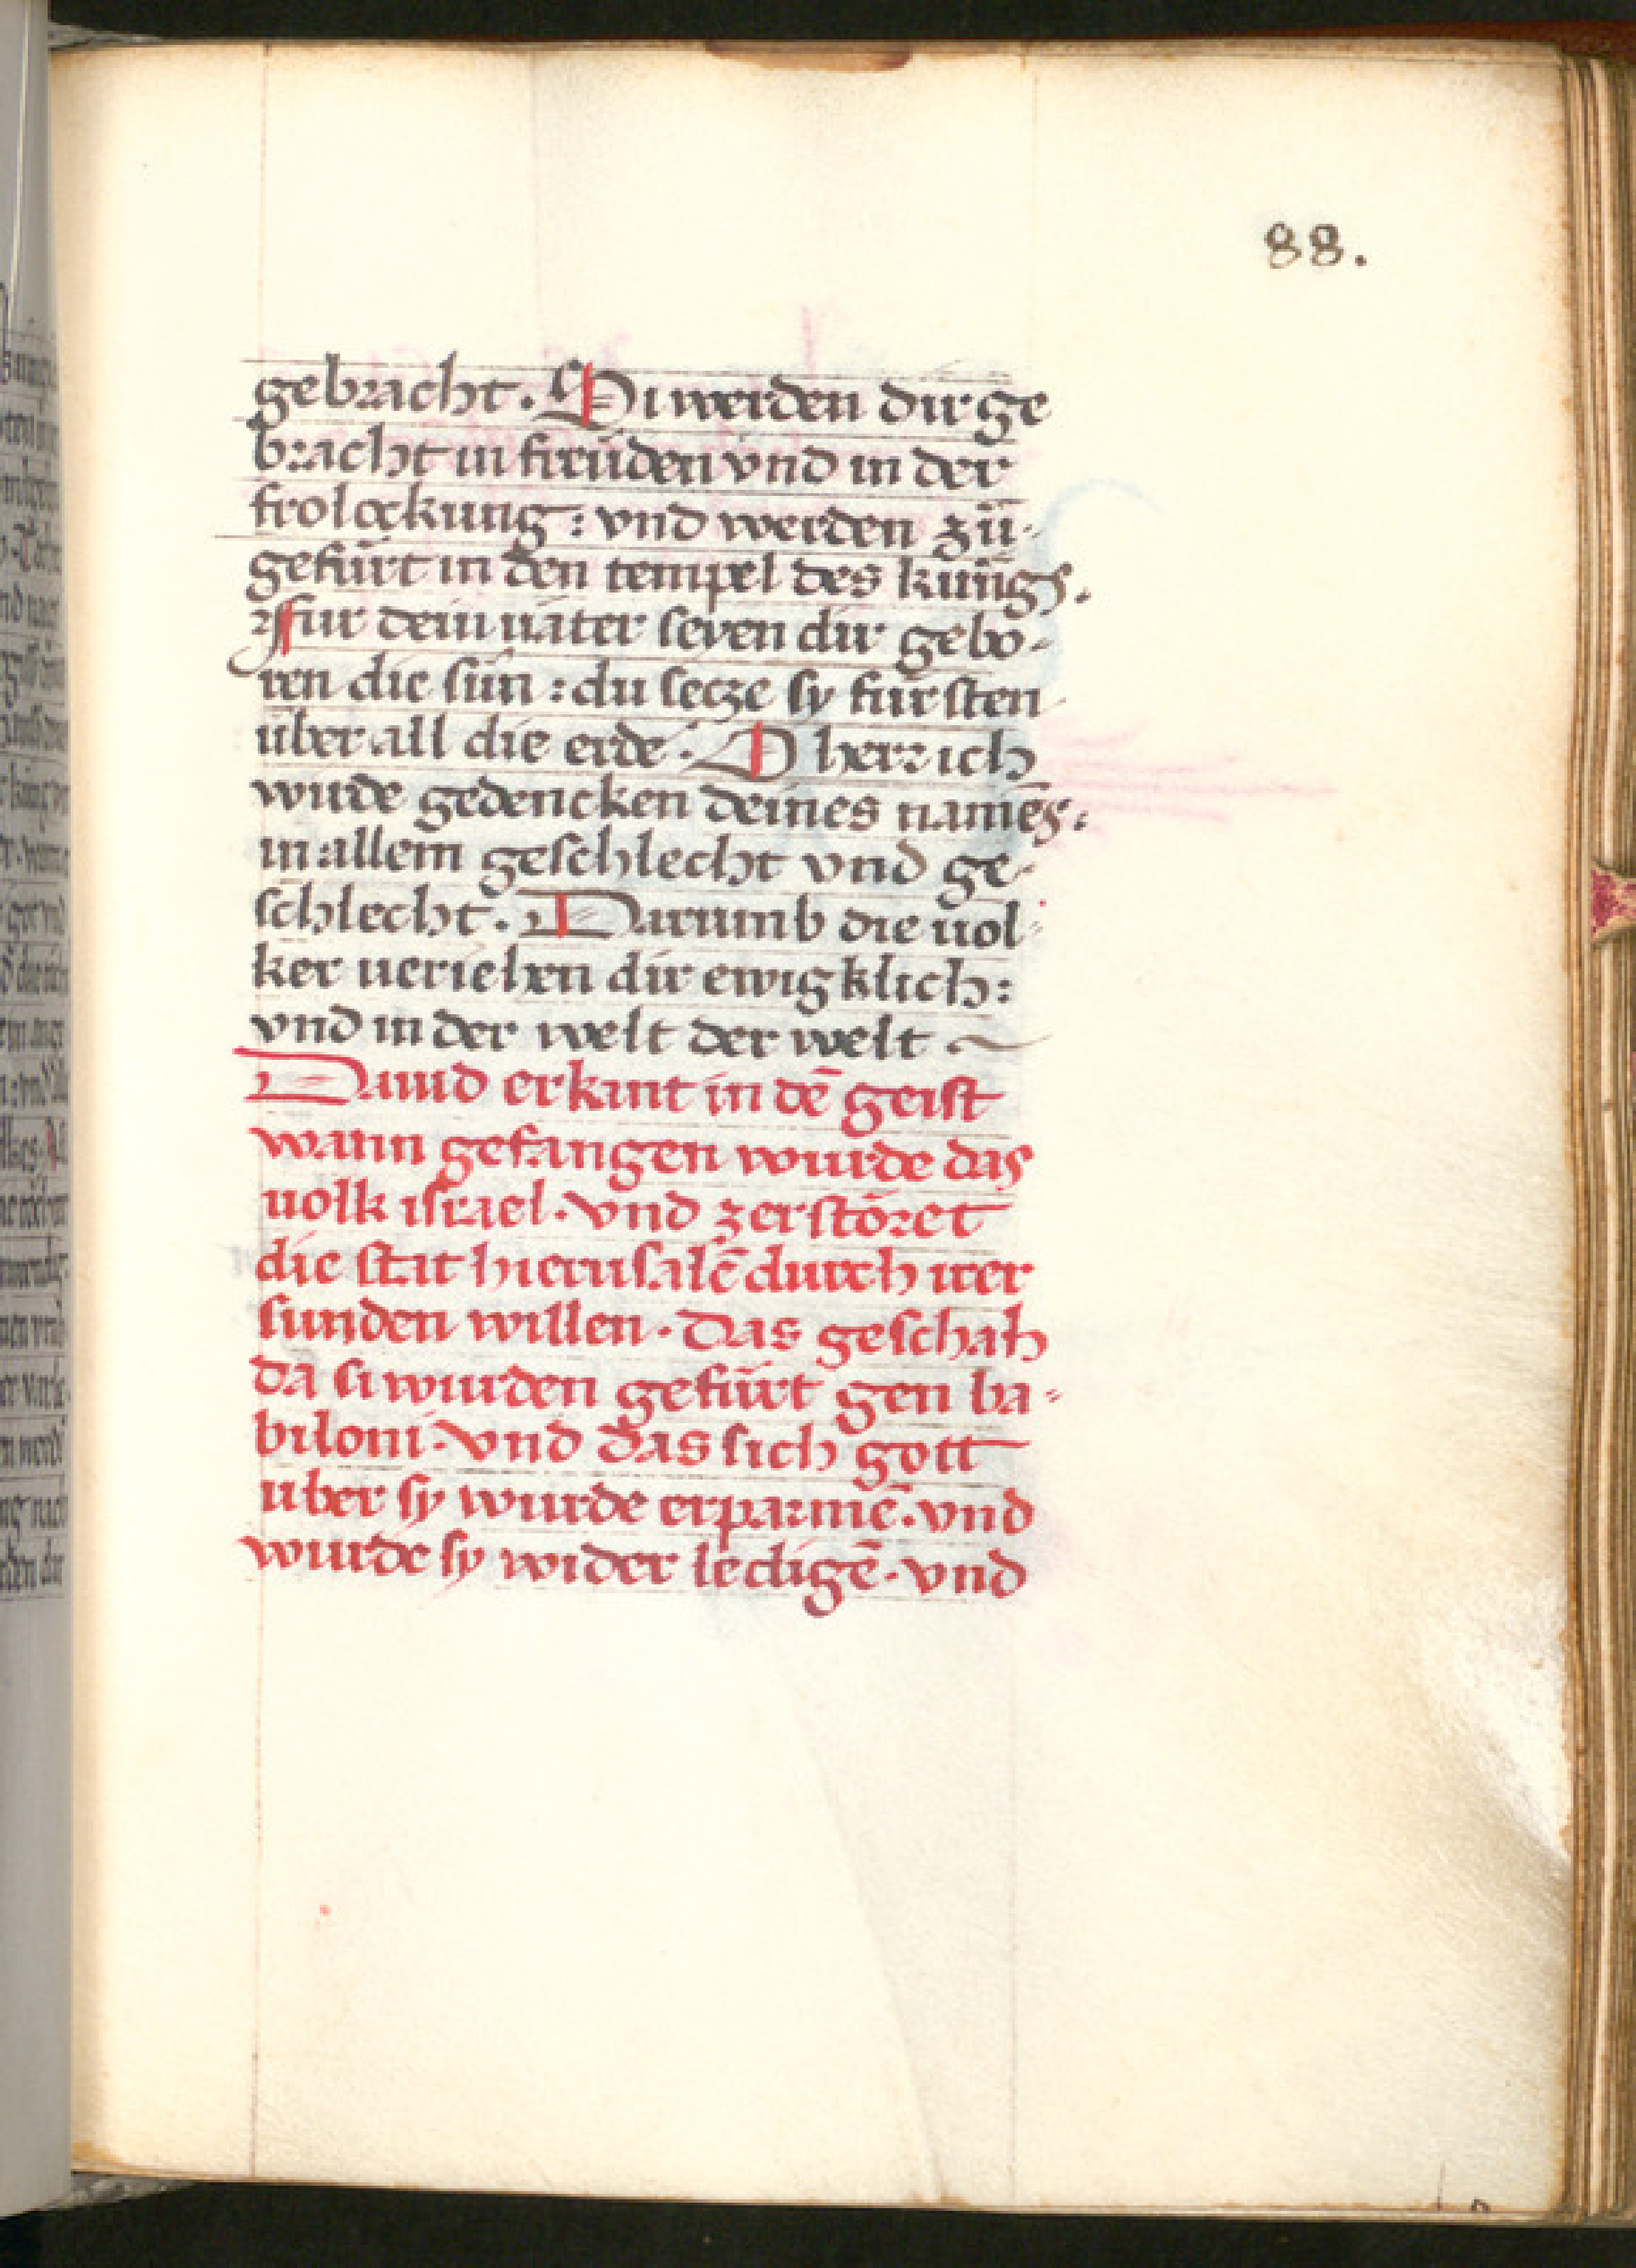 88.
gebracht. Si werden dir ge
bracht in freüden vnd in der
frolockung: vnd werden zü-
gefürt in den tempel des küngs.
Für dein uäter seyen dir gebo-
ren die sün: du secze sy fürsten
über all die erde. O herr ich
wirde gedencken deines namēs:
in allem geschlecht vnd ge-
schlecht. Darumb die uol-
ker ueriehen dir ewigklich:
vnd in der welt der welt ~
Dauid erkant in dē geist
wann gefangen wurde das
uolk israel. vnd zerstöret
die stat hierusalē durch irer
sunden willen. Das geschah
da si wurden gefürt gen ba-
biloni. vnd das sich gott
uber sy wurde erparmē. vnd
wurde sy wider ledigē. vnd